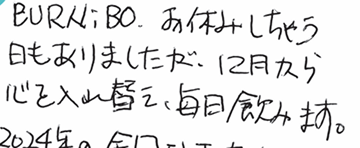 BURNiBO. お休みしちゃう
日もありましたが、12月から
心を入れ替え、毎日飲みます。
2024年の